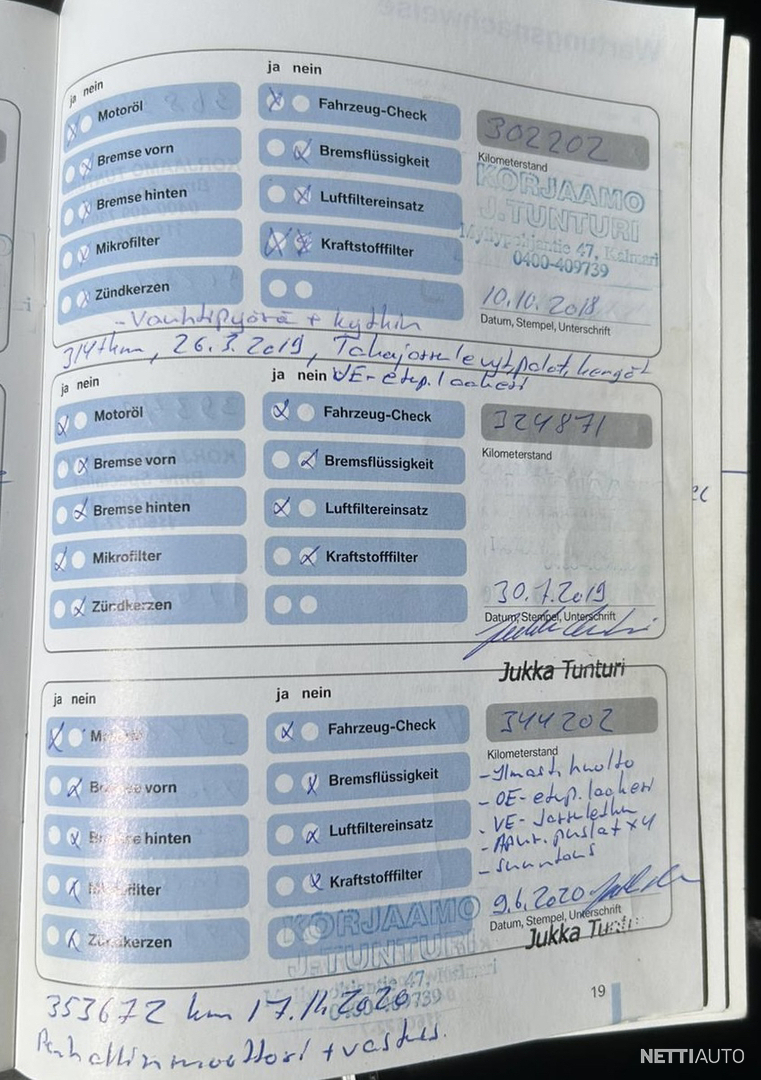 Wartungsnachweise
ja nein
Motoröl
Bremse vorn
Bremse hinten
Mikrofilter
Zündkerzen
ja nein
Fahrzeug-Check
Bremsflüssigkeit
Luftfiltereinsatz
Kraftstofffilter
302202
Kilometerstand
KORJAAMO
J.TUNTURI
Myllypohjantie 47, Kalmari
0400-409739
10.10.2018
Datum, Stempel, Unterschrift
-Vauhtipyörä + kytkin
314tkm, 26.3.2019, Takajarrulevyt, palat, kengät
VE-etup. laakeri
ja nein
Motoröl
Bremse vorn
Bremse hinten
Mikrofilter
Zündkerzen
ja nein
Fahrzeug-Check
Bremsflüssigkeit
Luftfiltereinsatz
Kraftstofffilter
324871
Kilometerstand
30.7.2019
Datum, Stempel, Unterschrift
Jukka Tunturi
ja nein
Bremse vorn
Bremse hinten
Mikrofilter
Zündkerzen
ja nein
Fahrzeug-Check
Bremsflüssigkeit
Luftfiltereinsatz
Kraftstofffilter
344202
Kilometerstand
-Ilmast. huolto
-OE-etup. laakeri
-VE-Jarruletku
-Apur. puslat x4
-suuntaus
9.6.2020
Datum, Stempel, Unterschrift
Jukka
KORJAAMO
J.TUNTURI
47,
0400-409739
353672 km 17.11.2020
Puhallinmoottori + vastus.
19
NETTIAUTO